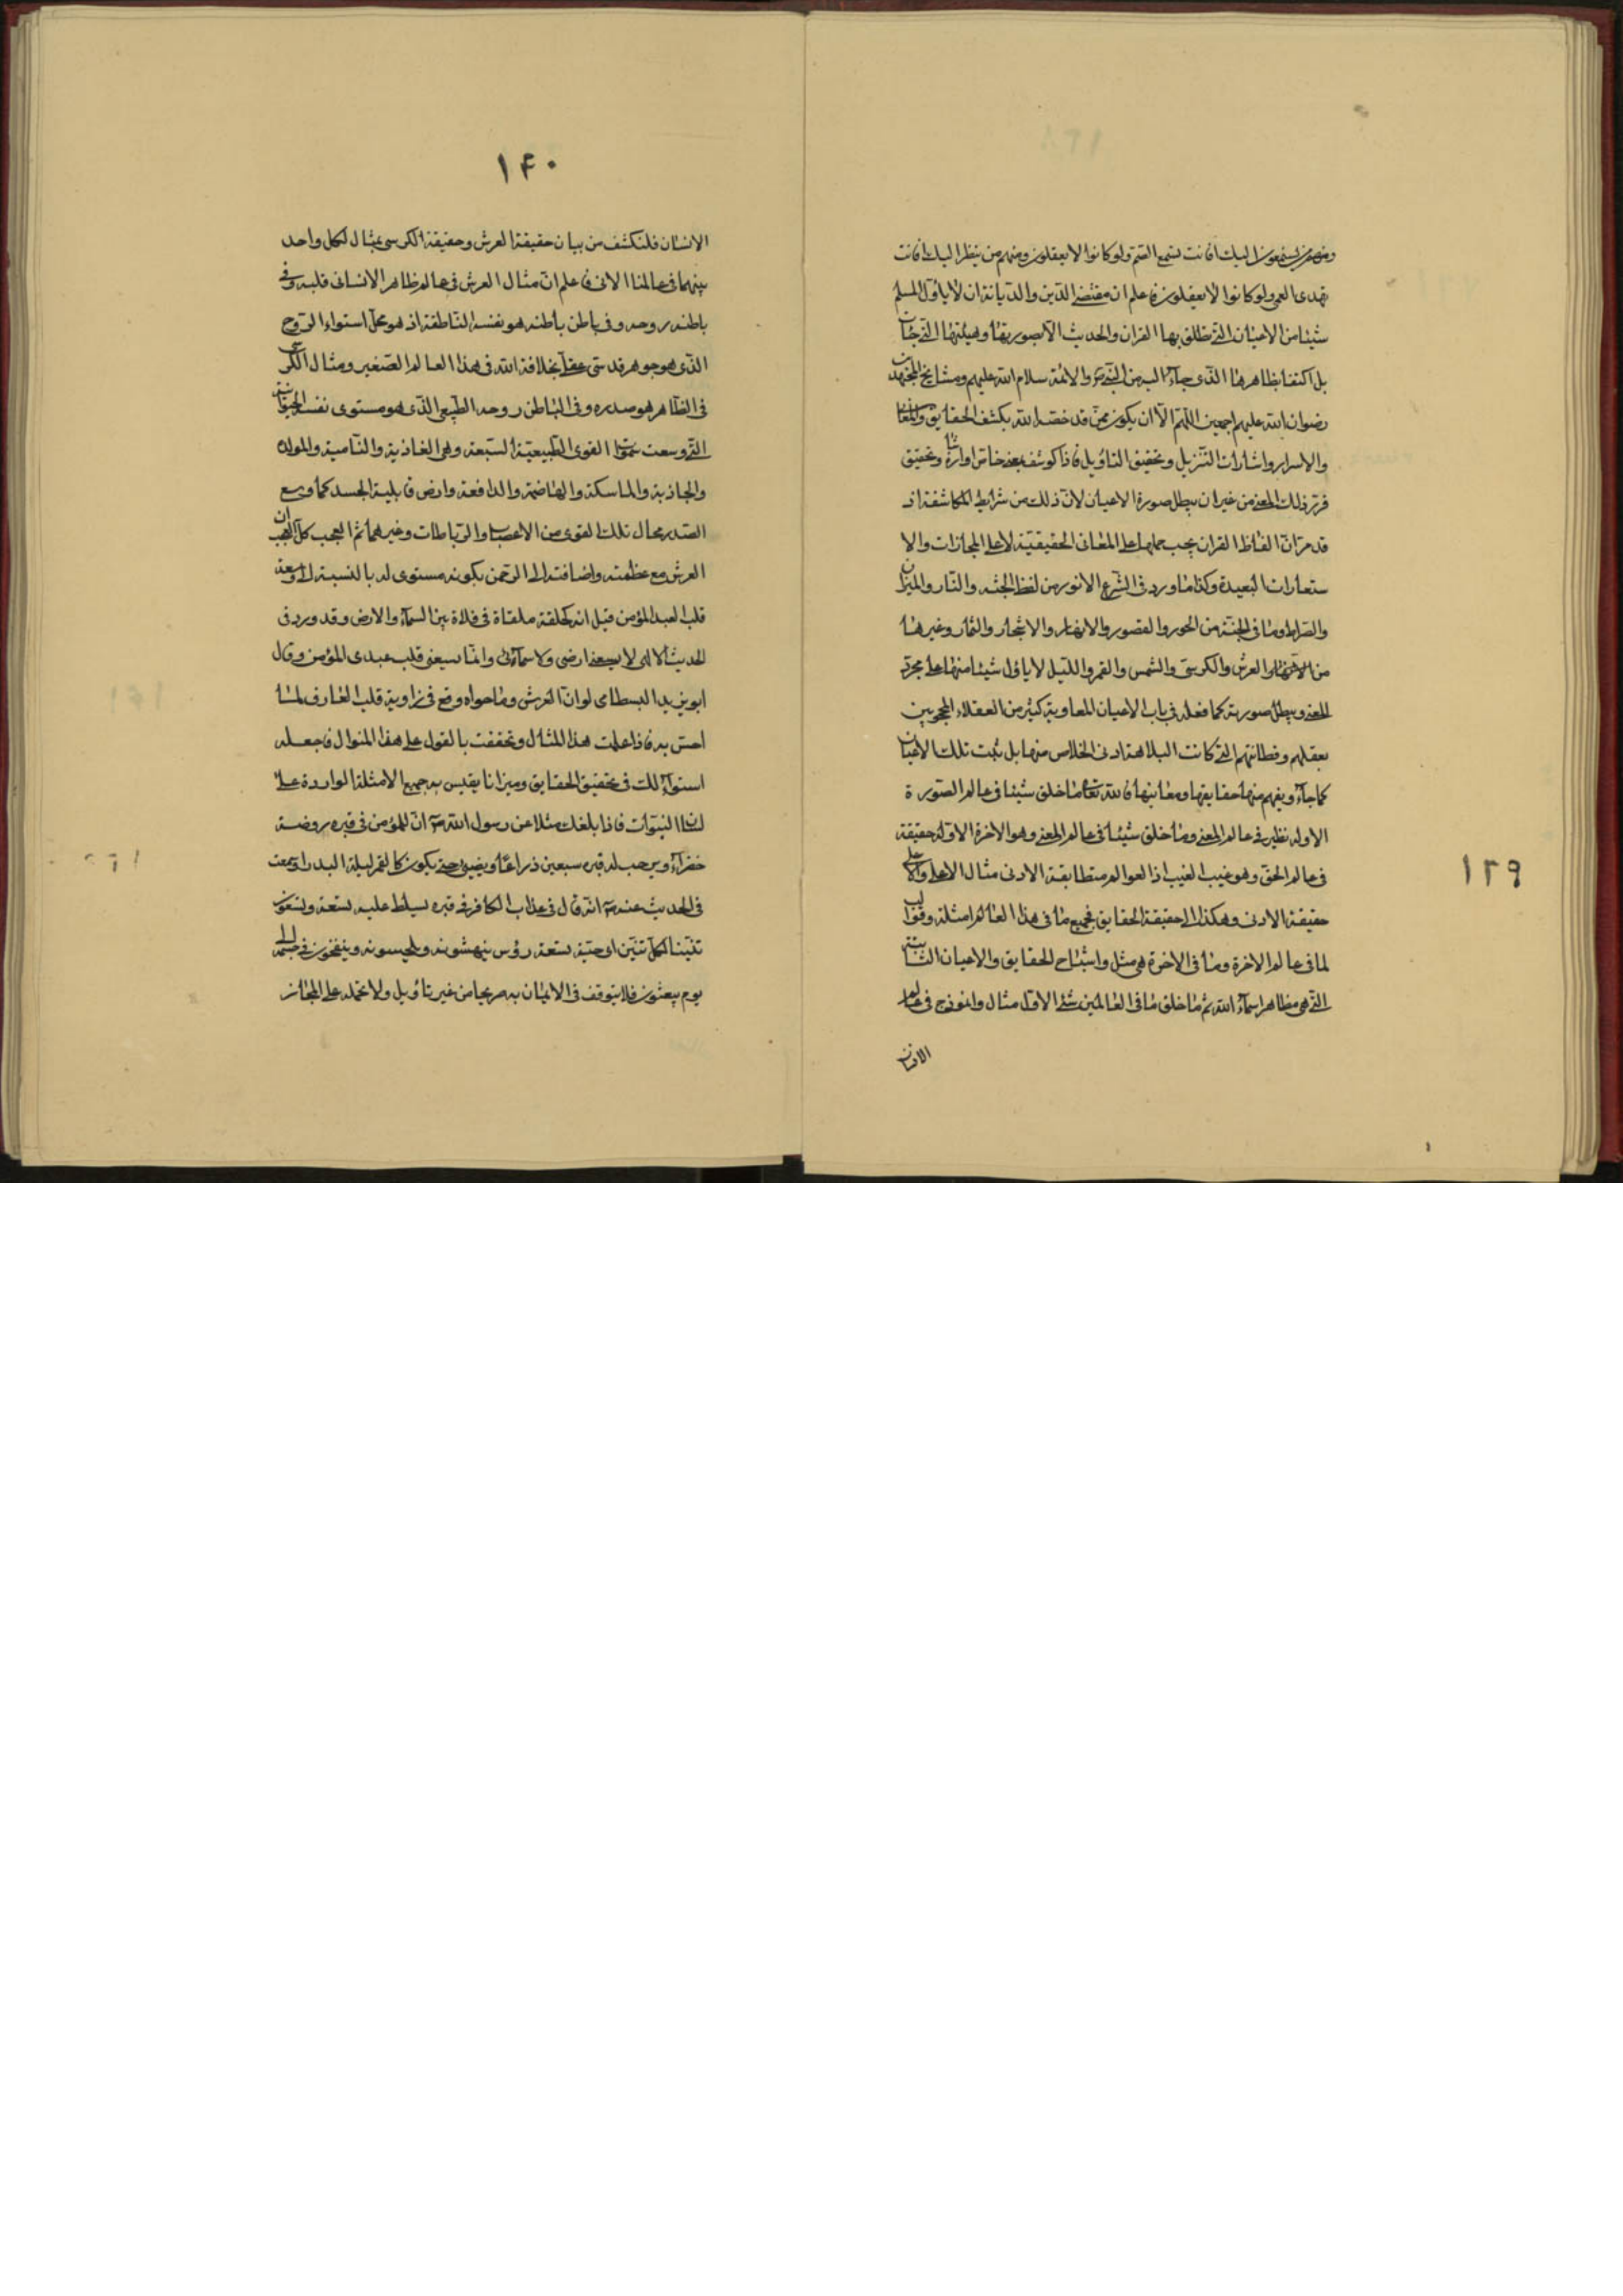 ١٣٩
ومنهم من يستمعون اليك افانت تسمع الصم ولو كانوا لا يعقلون ومنهم من ينظر اليك افانت
تهدى العمى ولو كانوا لا يعقلون فاعلم ان مقتضى الدين والديانة ان لا ياؤل المسلم
شيئا من الاعيان التى نطلق بها القران والحديث الا بصورتها وهيئتها التى جائت
بل اكتفا بظاهرها الذى جاء اليه من النبى والائمة سلام الله عليهم ومشايخ المجتهدين
رضوان الله عليهم اجمعين اللهم الا ان يكون ممن قد خصه الله بكشف الحقايق والمعانى
والاسرار واشارات التنزيل وتحقيق التاويل فاذا كوشف بمعنى خاص او اشارة وتحقيق
قرر ذلك المعنى من غير ان يبطل صورة الاعيان لان ذلك من شرايط المكاشفة اذ
قد مر ان الفاظ القران يجب حملها على المعانى الحقيقية لا على المجازات والا
ستعارات البعيدة وكذا ما ورد فى الشرع الانور من لفظ الجنة والنار والميزان
والصراط وما فى الجنة من الحور والقصور والانهار والاشجار والثمار وغيرها
من العرش والكرسى والشمس والقمر والليل لا ياؤل شيئا منها على مجرد
المعنى ويبطل صورته كما فعله فى باب الاعيان المعاوية كثير من العقلاء المحجوبين
بعقلهم وفطانتهم التى كانت البلاهة ادنى الخلاص منها بل نثبت تلك الاعيان
كما جاء ويفهم منها حقايقها ومعانيها فالله تعالى ما خلق شيئا فى عالم الصورة
الا وله نظير فى عالم المعنى وما خلق شيئا فى عالم المعنى وهو الاخرة الا وله حقيقة
فى عالم الحق وهو غيب الغيب اذ العوالم متطابقة الادنى مثال الاعلى والاعلى
حقيقة الادنى وهكذا الى حقيقة الحقايق فجميع ما فى هذا العالم امثلة وقوالب
لما فى عالم الاخرة وما فى الاخرة هى مثل واشباح للحقايق والاعيان الثابتة
التى هى مظاهر اسماء الله ثم ما خلق ما فى العالمين شئ الا وله مثال وانموذج فى عالم
الانسان
١۴٠
الانسان فلنكشف من بيان حقيقة العرش وحقيقة الكرسى بمثال لكل واحد
منهما فى عالمنا الانى فاعلم ان مثال العرش فى عالم ظاهر الانسانى قلبه وفى
باطنه روحه وفى باطن باطنه هو نفسه الناطقة اذ هو محل استواء الروح
الذى هو جوهر قدسى بخلافة الله فى هذا العالم الصغير ومثال الكرسى
فى الظاهر هو صدره وفى الباطن روحه الطبيعى الذى هو مستوى نفسه الحيوانية
التى وسعت القوى الطبيعية السبعة وهى الغاذية والنامية والمولدة
والجاذبة والماسكة والهاضمة والدافعة وارض قابلية الجسد كما وسع
الصدر محال تلك القوى من الاعصاب والرباطات وغيرهما ثم العجب كل العجب ان
العرش مع عظمته واضافته الى الرحمن بكونه مستوى له بالنسبة الى وسعة
قلب العبد المؤمن قيل انه كحلقة ملقاة فى فلاة بين السماء والارض وقد ورد فى
الحديث الالهى لا يسعنى ارضى ولا سمائى وانما يسعنى قلب عبدى المؤمن وقال
ابو يزيد البسطامى لو ان العرش وما حواه وقع فى زاوية قلب العارف لما
احس به فاذا علمت هذا المثال وتحققت بالقول على هذا المنوال فاجعله
استواء لك فى تحقيق الحقايق وميزانا يقيس به جميع الامثلة الواردة على
لسان النبوات فاذا بلغك مثلا عن رسول الله ص ان للمؤمن فى قبره روضة
خضراء ويرحب له قبره سبعين ذراعا ويضيئ حتى يكون كالقمر ليلة البدر او سمعت
فى الحديث عنه ص انه قال فى عذاب الكافر فى قبره يسلط عليه تسعة وتسعون
تنينا لكل تنين تسعة رؤس ينهشونه ويلحسونه وينفخون فى جسمه الى
يوم يبعثون فلا يتوقف فى الايمان به صريحا من غير تاويل ولا تحمله على المجاز